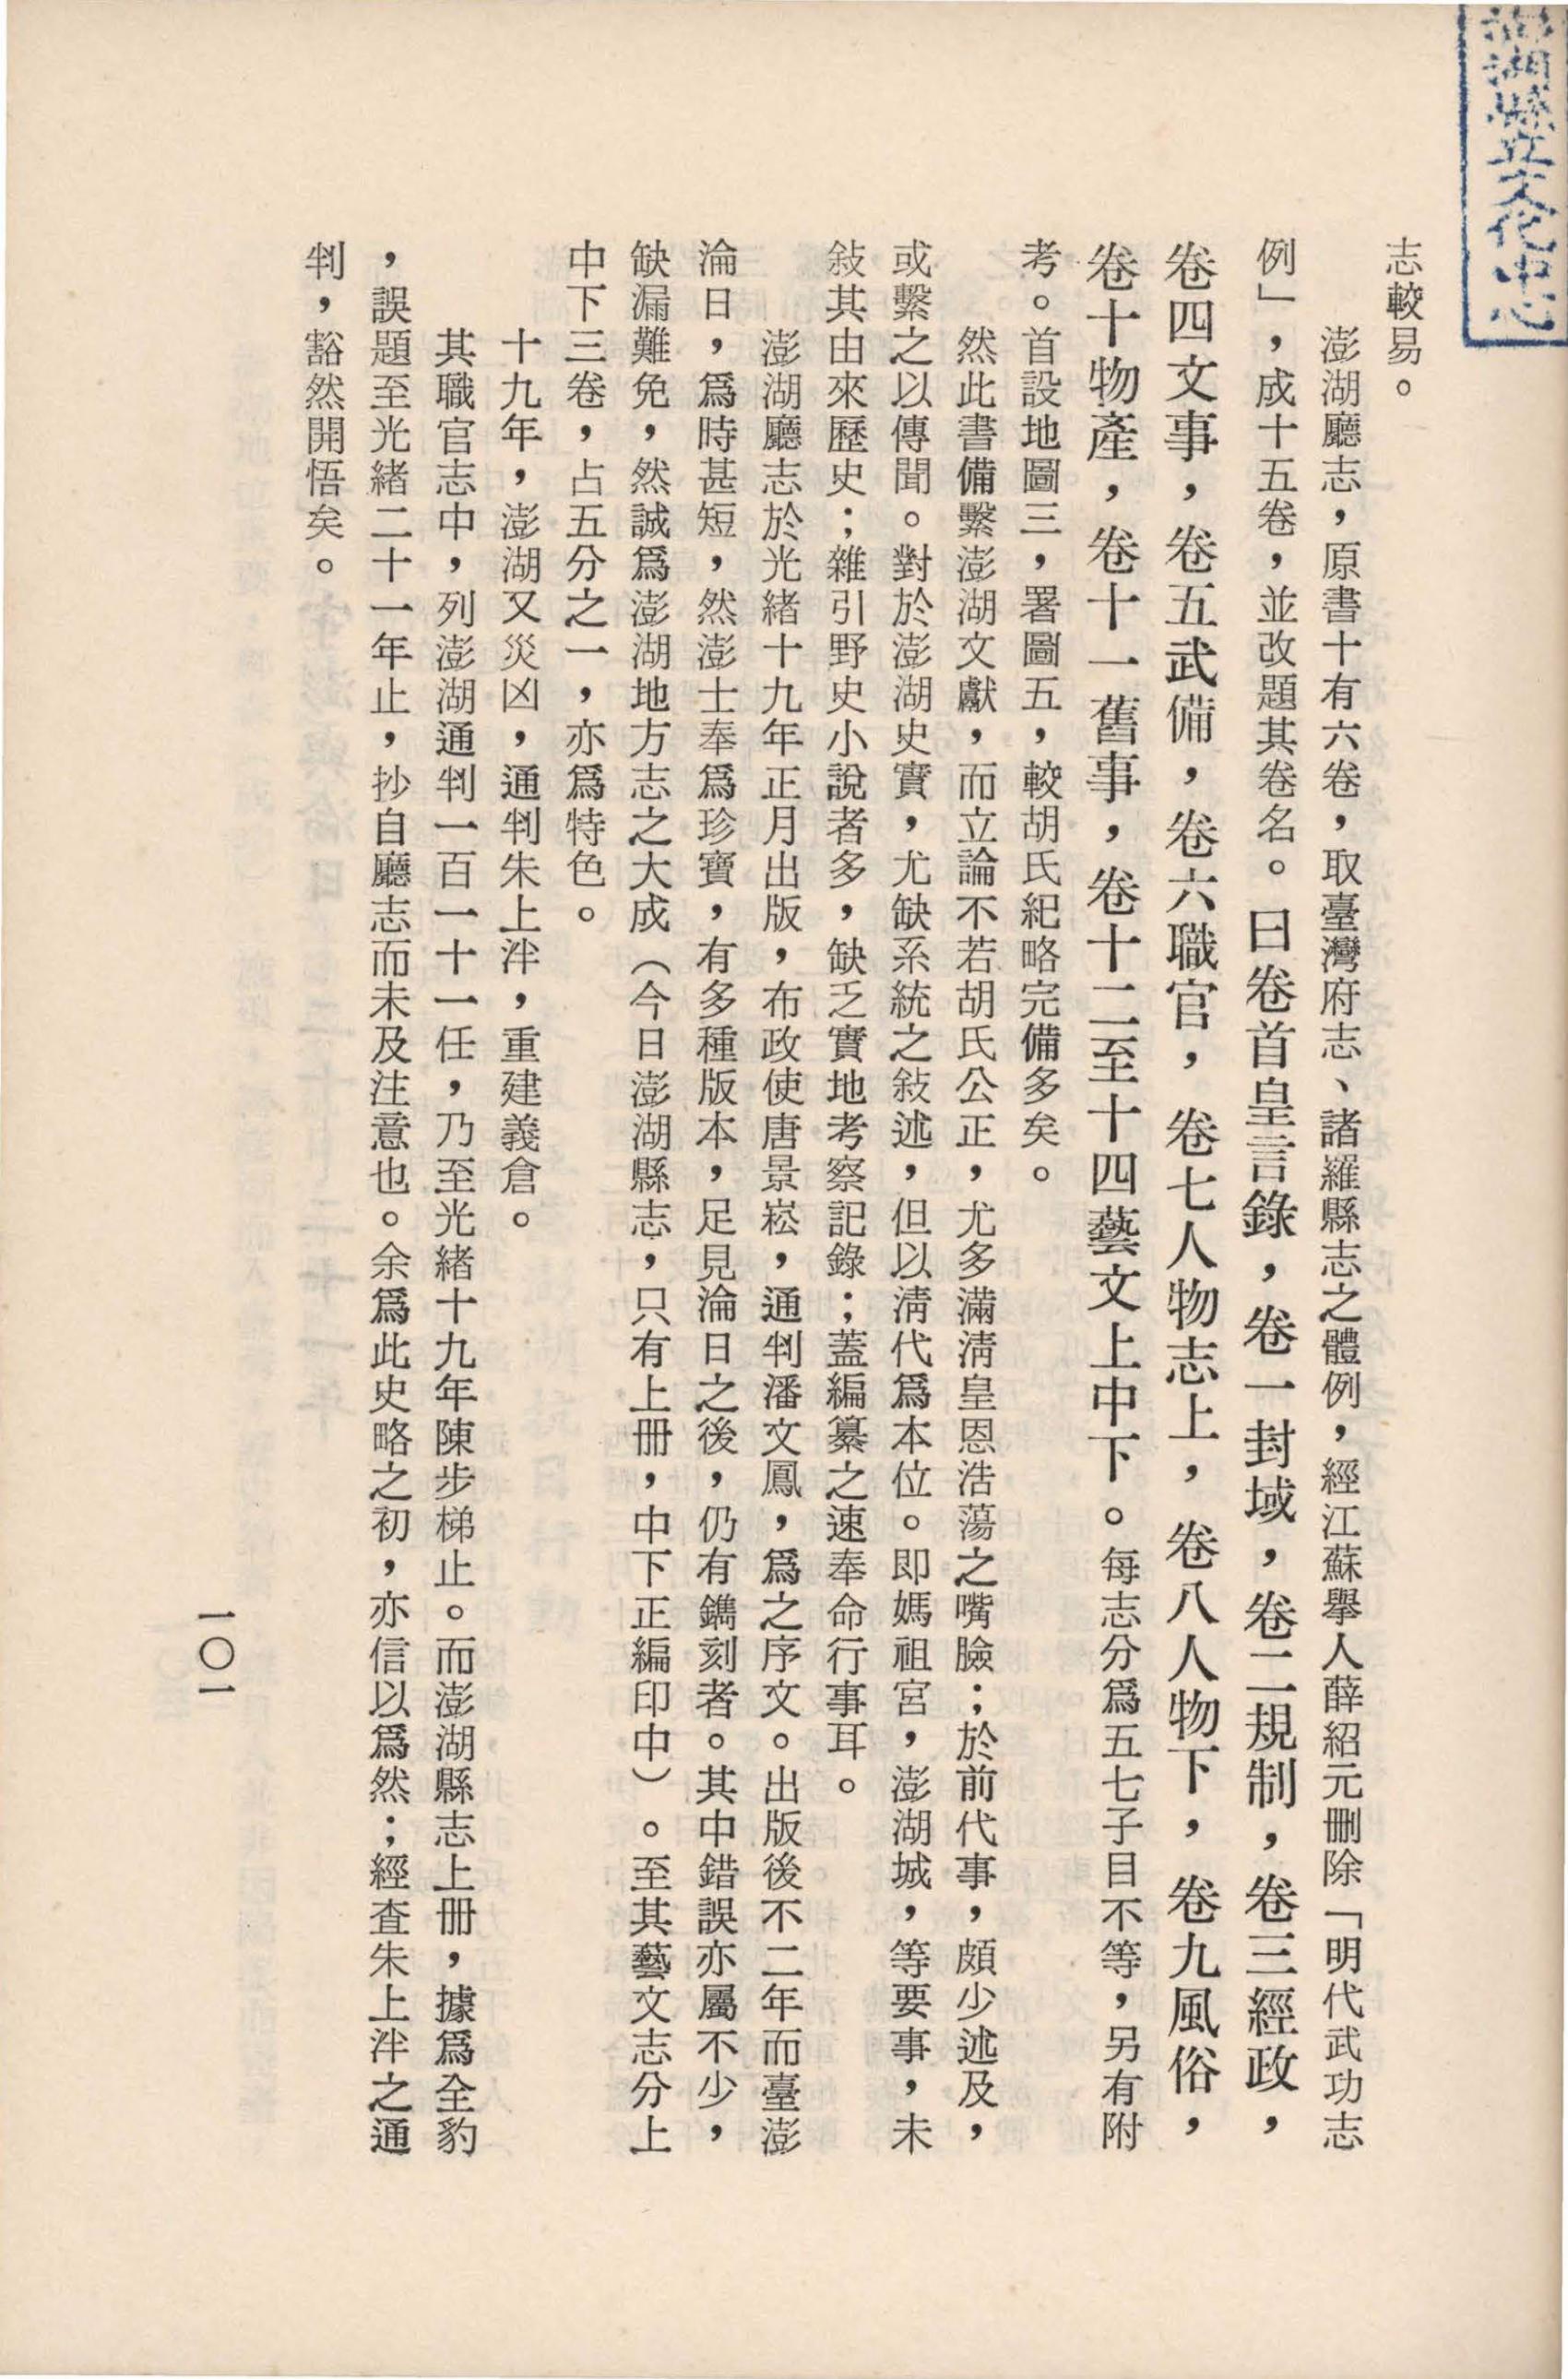 湖縣立文化中心
志較易。
澎湖廳志，原書十有六卷，取臺灣府志、諸羅縣志之體例，經江蘇舉人薛紹元刪除「明代武功志
例」，成十五卷，並改題其卷名。曰卷首皇言錄，卷一封域，卷二規制，卷三經政，
卷四文事，卷五武備，卷六職官，卷七人物志上，卷八人物下，卷九風俗，
卷十物產，卷十一舊事，卷十二至十四藝文上中下。每志分爲五七子目不等，另有附
考。首設地圖三，署圖五，較胡氏紀略完備多矣。
然此書備繫澎湖文獻，而立論不若胡氏公正，尤多滿淸皇恩浩蕩之嘴臉；於前代事，頗少述及，
或繫之以傳聞。對於澎湖史實，尤缺系統之敍述，但以淸代爲本位。即媽祖宮，澎湖城，等要事，未
敍其由來歷史；雜引野史小說者多，缺乏實地考察記錄；蓋編纂之速奉命行事耳。
澎湖廳志於光緒十九年正月出版，布政使唐景崧，通判潘文鳳，爲之序文。出版後不二年而臺澎
淪日，爲時甚短，然澎士奉爲珍寶，有多種版本，足見淪日之後，仍有鐫刻者。其中錯誤亦屬不少，
缺漏難免，然誠爲澎湖地方志之大成（今日澎湖縣志，只有上册，中下正編印中）。至其藝文志分上
中下三卷，占五分之一，亦爲特色。
十九年，澎湖又災凶，通判朱上泮，重建義倉。
其職官志中，列澎湖通判一百一十一任，乃至光緒十九年陳步梯止。而澎湖縣志上册，據爲全豹
，誤題至光緒二十一年止，抄自廳志而未及注意也。余爲此史略之初，亦信以爲然；經查朱上泮之通
判，豁然開悟矣。
一〇一